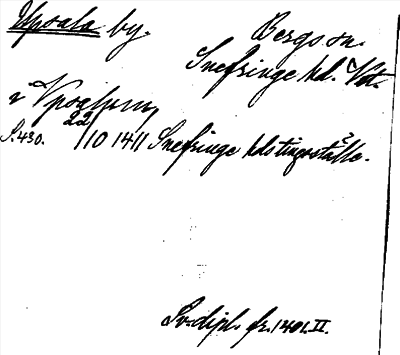 Upsala by.
Bergs sn.
Snefringe hd. Vstm.
i Vpsalum
S. 430. 22/10 1411 Snefringe hds tingsställe.
Sv. dipl. fr. 1401. II.